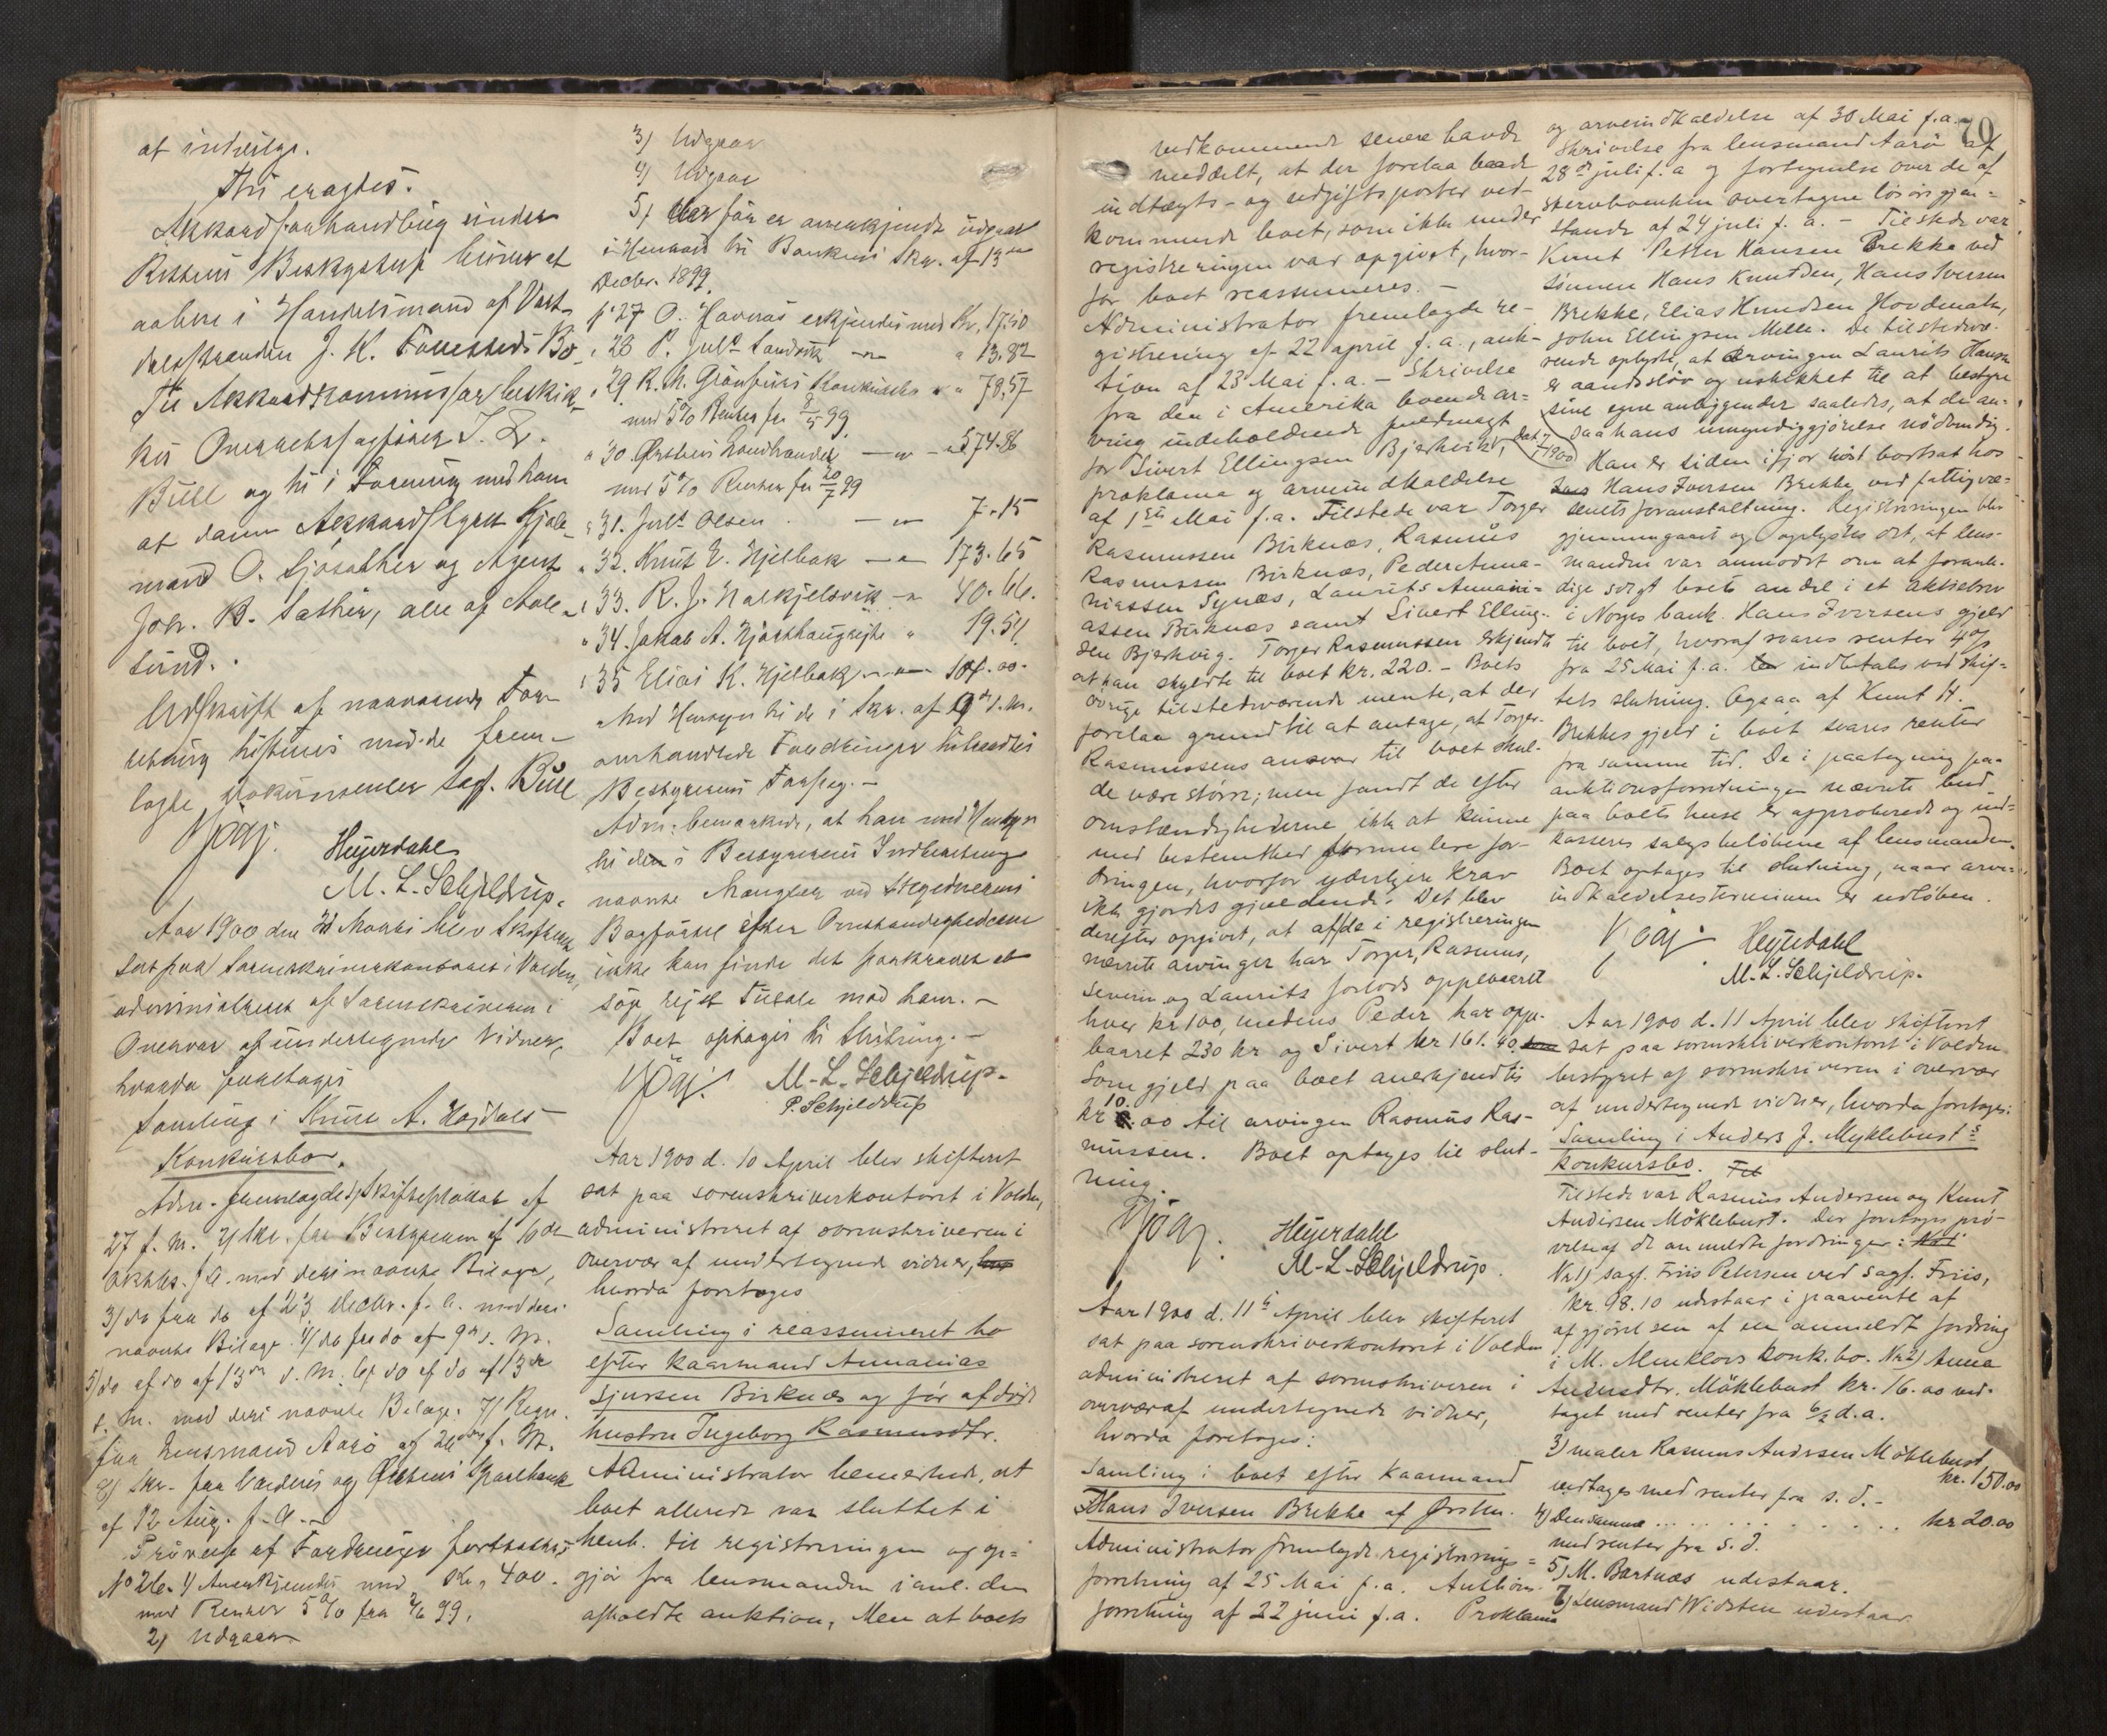 at indvilge.
Thi eragtes:
Akkordforhandling under
Rettens Beskyttelse bliver at
aabne i Handelsmand af Vart-
dalsstranden J. K. Tollessteds Bo
Til Akkordkommissær beskik-
kes Overretssagfører I. L.
Bull og til i Forening med ham
at danne Akkordstyret Kjøb-
mand O. Sjøsæther og Agent
Joh. B. Sæther, alle af Aale-
sund.
Udskrift af nærværende For-
retning tilstilles med de frem-
lagte Dokumenter Sagf. Bull
Heyerdahl
M. L. Schjeldrup.
Aar 1900 den Marts blev Skifteret
sat paa Sorenskriverkontoret i Volden,
administreret af Sorenskriveren i
Overvær af undertegnede Vidner,
hvorda foretages
Samling i Knut A. Højdals
Konkursbo.
Adm. fremlagde 1) Skifteplakat af
27 f. M. 2) Skr. fra Bestyreren af 16de
Oktbr. f. A. med deri nævnte Bilage,
3) do fra do af 23 Decbr. f. A. med deri
nævnte Bilage 4) do fra do af 9de d. M.
5) do af do af 13de d. M. 6) do af do af 13de
d. M. med deri nævnte Bilage. 7) Regn.
fra Lensmand Aarø af 24de f. M.
8) Skr. fra Voldens og Ørstens Sparebank
af 12 Aug. f. A. -
Prøvelse af Fordringer fortsattes:
No 26. 1) Anerkjendes med Kr. 400.
med Renter 5 % fra 99.
2) Udgaar
3) Udgaar
4) Udgaar
5) før er anerkjendt udgaar
i Henhold til Bankens Skr. af 13de
Decbr. 1899.
No 27 O. Haveraas erkjendes med Kr. 17.40
" 28 P. Jul. Landsvik — " 13.82
" 29 R. M. Grønfurs Konkursbo " " 78,57
med 5 % Renter fra 8/5 99.
" 30 Ørstens Landhandel — " — 574.86
med 5 % Renter fra 20/7 99
" 31. Joh. Olsen — " 7.15
" 32. Knut E. Hjelbak — " 173.65
" 33. R. J. Halkjelsvik — " 40.66.
" 34. Jakob A. Hjorthaugseft. " 19.54
" 35 Elias K. Hjelbak — " 104.00.
Med Hensyn til de i Skr. af 9de d. M.
omhandlede Fordringer tiltraadtes
Bestyrerens Forslag. -
Adm. bemærkede, at han med Hensyn
til den i Bestyrerens Indberetning
nævnte Mangler ved
Bogførsel efter Omstændighederne
ikke kan finde det paakrævet at
søge rejst Tiltale mod ham. -
Boet optages til Slutning. -
M. L. Schjeldrup.
P. Schjeldrup
Aar 1900 d. 10 April blev skifteret
sat paa sorenskriverkontoret i Volden,
administreret af sorenskriveren i
overvær af undertegnede vidner,
hvorda foretages
Samling i reassumeret bo
efter kaarmand Annanias
Sjursen Birknæs og før afdøde
hustru Ingeborg Rasmusdtr.
Administrator bemerkede, at
boet allerede var sluttet i
henh. til registreringen og op-
gjør fra lensmanden i anl. den
afholdte auktion, Men at boets
vedkommende senere havde
meddelt, at der forelaa baade
indtægts- og udgiftsposter ved-
kommende boet, som ikke under
registreringen var opgivet, hvor-
for boet reassumeres. -
Administrator fremlagde re-
gistrering af 22 april f. a., auk-
tion af 23 Mai f. a. - Skrivelse
fra den i Amerika boende ar-
ving indeholdende fuldmagt
for Sivert Ellingsen Bjerkvik,
proklama og arveindkaldelse
af 1ste Mai f. a. Tilstede var Torger
Rasmussen Birknæs, Rasmus
Rasmussen Birknæs, Peder Anna-
niassen Synæs, Laurits Annani-
assen Birknæs samt Sivert Elling-
sen Bjerkvig. Torger Rasmussen erkjendte
at han skyldte til boet kr. 220. - Boets
øvrige tilstedeværende mente, at der
forelaa grund til at antage, at Torger
Rasmussens ansvar til boet skul-
de være større; men fandt de efter
omstændighederne ikke at kunne
med bestemthed formulere for-
dringen, hvorfor yderligere krav
ikke gjordes gjældende. Det blev
derefter opgivet, at af de i registreringen
nævnte arvinger har Torger, Rasmus,
Severin og Laurits forlods oppebaaret
hver kr 100, medens Peder har oppe-
baaret 230 kr og Sivert kr 161.40.
Som gjeld paa boet anerkjendtes
kr 10.00 til arvingen Rasmus Ras-
mussen. Boet optages til slut-
ning.
Heyerdahl
M. L. Schjeldrup.
Aar 1900 d. 11te April blev skifteret
sat paa sorenskriverkontoret i Volden
administreret af sorenskriveren i
overvær af undertegnede vidner,
hvorda foretages:
Samling i boet efter kaarmand
Hans Iversen Brekke af Ørsten.
Administrator fremlagde registrerings-
forretning af 25 Mai f. a. Auktions-
forretning af 22 juni f. a. Proklama
70
og arveindkaldelse af 30 Mai f. a.
Skrivelse fra lensmand Aarø af
28de juli f. a og fortegnelse over de af
stervboenken overtagne løsøregjen-
stande af 24 juli f. a. - Tilstede var
Knut Petter Hansen Brekke ved
sønnen Hans Knutsen, Hans Iversen
Brekke, Elias Knudsen Hovdenak,
John Ellingsen Melle. De tilstedevæ-
rende oplyste, at arvingen Laurits Hansen
er aandssløv og uskikket til at bestyre
sine egne anliggender saaledes, at de an-
saa hans umyndiggjørelse nødvendig.
Han er siden ifjor høst bortsat hos
Hans Iversen Brekke ved fattigvæ-
senets foranstaltning. Registreringen blev
gjennemgaaet og oplystes det, at lens-
manden var anmodet om at foran-
dige solgt boets andel i et aktiebrev
i Norges bank. Hans Iversens gjeld
til boet, hvoraf svares renter 4 %
fra 25 Mai f. a. indbetales ved skif-
tets slutning. Ogsaa af Knut H.
Brekkes gjeld i boet svares renter
fra samme tid. De i paategning paa
auktionsforretningen nævnte bud
paa boets huse er approberede og ind-
kasseres salgsbeløbene af lensmanden.
Boet optages til slutning, naar arve-
indkaldelsesterminen er udløben.
Heyerdahl
M. L. Schjeldrup.
Aar 1900 d. 11 April blev skifteret
sat paa sorenskriverkontoret i Volden
bestyret af sorenskriveren i overvær
af undertegnede vidner, hvorda foretages:
Samling i Anders J. Myklebusts
konkursbo.
Tilstede var Rasmus Andersen og Knut
Andersen Möklebust. Der foretages prø-
velse af de anmeldte fordringer:
No 1) sagf. Friis Petersen ved sagf. Friis,
kr. 98.10 udestaar i paavente af
afgjørelsen af en anmeldt fordring
i M. Menklers konk. bo. No 2) Anna
Andersdtr. Möklebust kr. 16.00 ved-
taget med renter fra 6/2 d. a.
3) maler Rasmus Andersen Möklebust
kr. 150.00
vedtages med renter fra s. d. -
4) Den samme . . . . . . . kr 20.00
med renter fra s. d.
5) M. Bartnæs udestaar.
6) Lensmand Widsten udestaar.